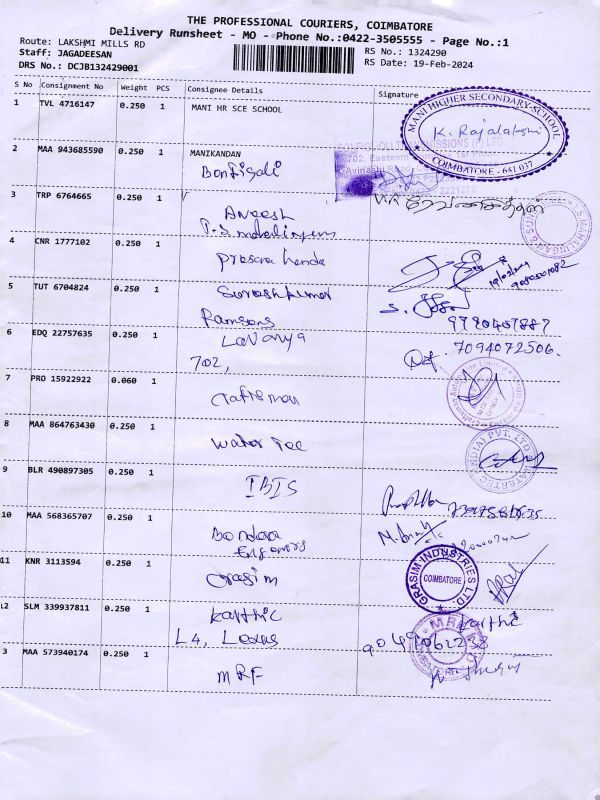 THE PROFESSIONAL COURIERS, COIMBATORE
Delivery Runsheet - MO - Phone No.:0422-3505555 - Page No.:1
Route: LAKSHMI MILLS RD
Staff: JAGADEESAN
DRS No.: DCJB132429001
RS No.: 1324290
RS Date: 19-Feb-2024
S No Consignment No Weight PCS Consignee Details Signature
1 TVL 4716147 0.250 1 MANI HR SCE SCHOOL
MANI HIGHER SECONDARY SCHOOL
K. Rajalakshmi
COIMBATORE - 641 037
2 MAA 943685590 0.250 1 MANIKANDAN
Bonfigoli
702, Eastern
Avinashi
2221375
3 TRP 6764665 0.250 1
Aneesh
P.S. mahalingam
4 CNR 1777102 0.250 1 prasanchanda
19/02/2024
5 TUT 6704824 0.250 1 Sureshkumar
Ramsons
9790407887
6 EDQ 22757635 0.250 1 Lavanya
702,
7094072506.
7 PRO 15922922 0.060 1
Craftsman
8 MAA 864763430 0.250 1
Water Tec
WATERTEC (INDIA) PVT. LTD.
9 BLR 490897305 0.250 1
IBIS
10 MAA 568365707 0.250 1
11 KNR 3113594 0.250 1 Grasim
GRASIM INDUSTRIES LTD
COIMBATORE
12 SLM 339937811 0.250 1 Karthic
L4, Lexus
Karthi
9049062238
3 MAA 573940174 0.250 1
MRF